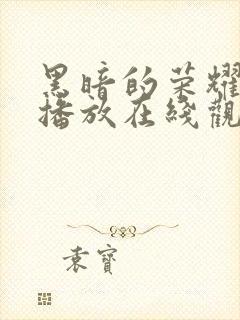 黑暗的荣耀
播放在綫觀
袁寶